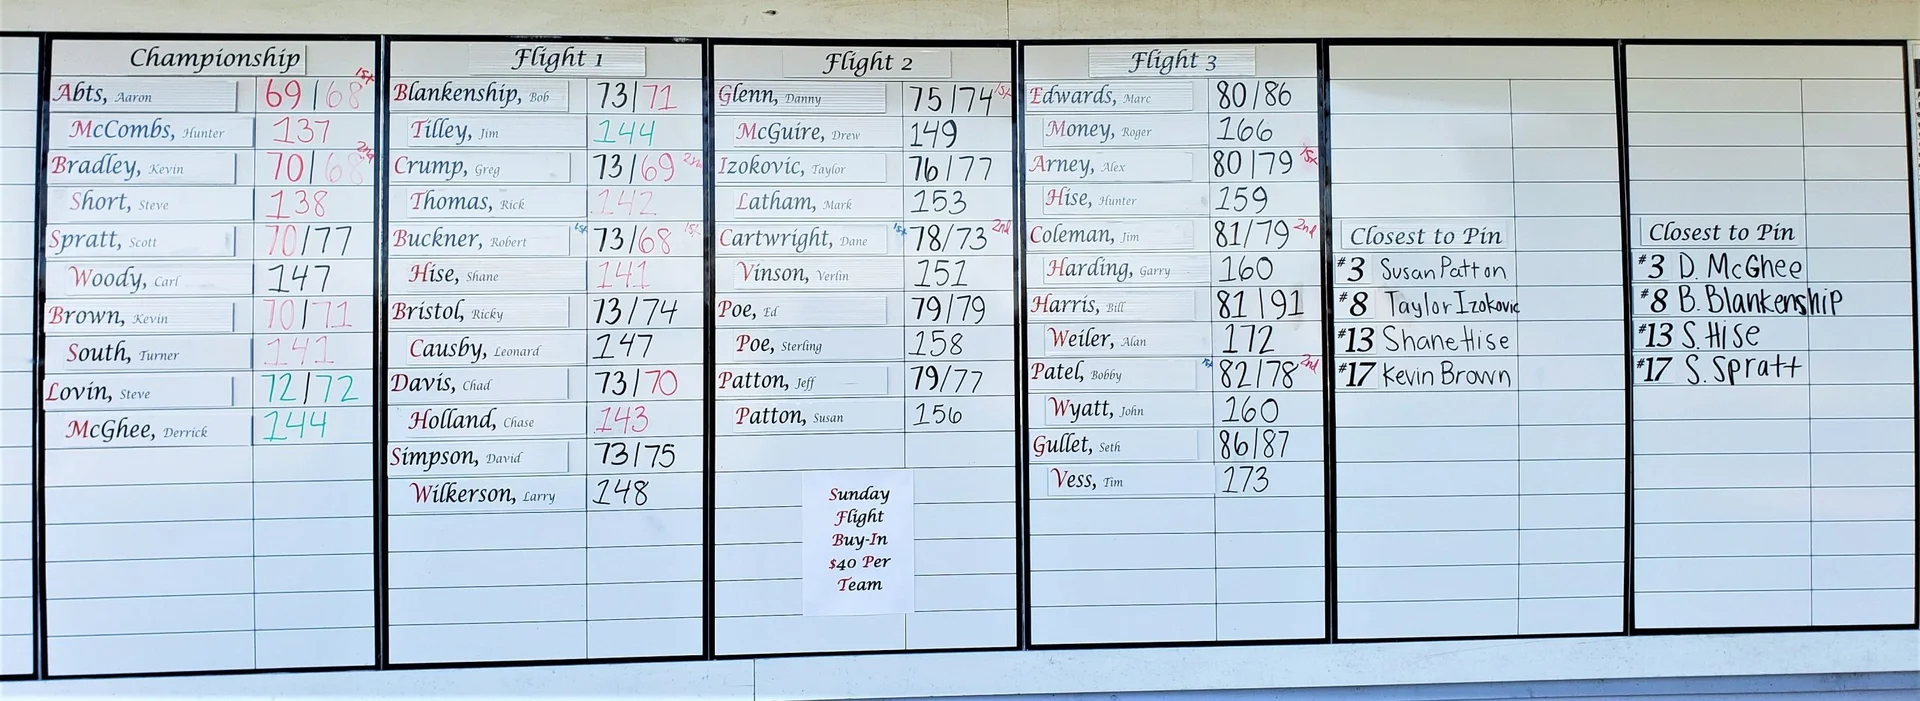 Championship
Abts, Aaron 69/68 1st
McCombs, Hunter 137
Bradley, Kevin 70/68 2nd
Short, Steve 138
Spratt, Scott 70/77
Woody, Carl 147
Brown, Kevin 70/71
South, Turner 141
Lovin, Steve 72/72
McGhee, Derrick 144
Flight 1
Blankenship, Bob 73/71
Tilley, Jim 144
Crump, Greg 73/69 2nd
Thomas, Rick 142
Buckner, Robert 1st 73/68 1st
Hise, Shane 141
Bristol, Ricky 73/74
Causby, Leonard 147
Davis, Chad 73/70
Holland, Chase 143
Simpson, David 73/75
Wilkerson, Larry 148
Flight 2
Glenn, Danny 75/74 1st
McGuire, Drew 149
Izokovic, Taylor 76/77
Latham, Mark 153
Cartwright, Dane 1st 78/73 2nd
Vinson, Verlin 151
Poe, Ed 79/79
Poe, Sterling 158
Patton, Jeff 79/77
Patton, Susan 156
Sunday
Flight
Buy-In
$40 Per
Team
Flight 3
Edwards, Marc 80/86
Money, Roger 166
Arney, Alex 80/79 1st
Hise, Hunter 159
Coleman, Jim 81/79 2nd
Harding, Garry 160
Harris, Bill 81/91
Weiler, Alan 172
Patel, Bobby 1st 82/78 2nd
Wyatt, John 160
Gullet, Seth 86/87
Vess, Tim 173
Closest to Pin
#3 Susan Patton
#8 Taylor Izokovic
#13 Shane Hise
#17 Kevin Brown
Closest to Pin
#3 D. McGhee
#8 B. Blankenship
#13 S. Hise
#17 S. Spratt